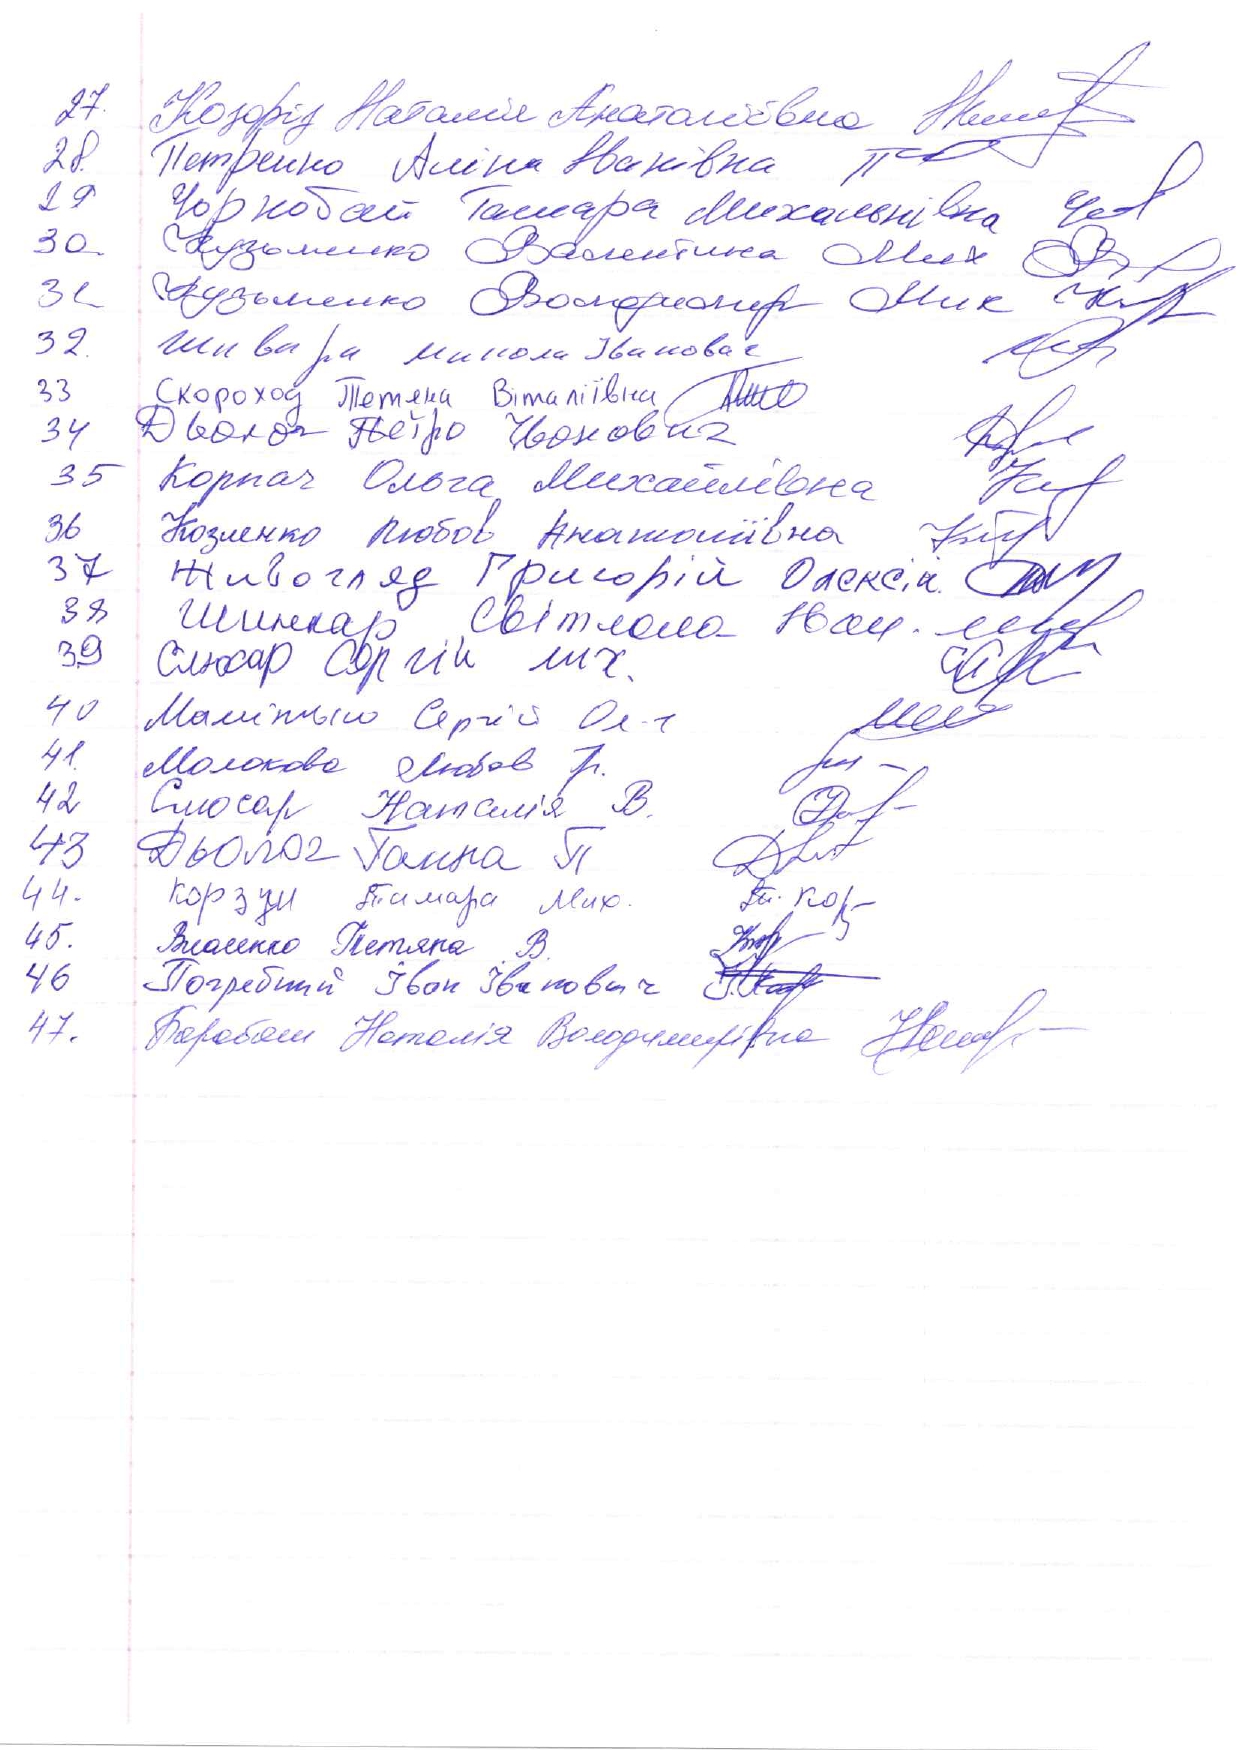 27. Козоріз Наталія Анатоліївна
28. Петренко Аліна Іванівна
29 Чорнобай Тамара Михальнівна
30 Кузьменко Валентина Мих
31 Кузьменко Володимир Мик
32. Шивира микола Іванович
33 Скороход Тетяна Віталіївна
34 Дьолог Петро Іванович
35 Корпач Ольга Михайлівна
36 Козленко Любов Анатоліївна
37 Живогляд Григорій Олексій.
38 Шинкар Світлана Іван.
39 Слюсар Сергій мих.
40 Сергій Ол-ч
41. Молокова Любов Гр.
42 Слюсар Наталія В.
43 Дьолог Ганна П
44. Корзун Тамара Мих. Т. Кор
45. Власенко Тетяна В.
46 Погребний Іван Іванович
47. Барабаш Наталія Володимирівна